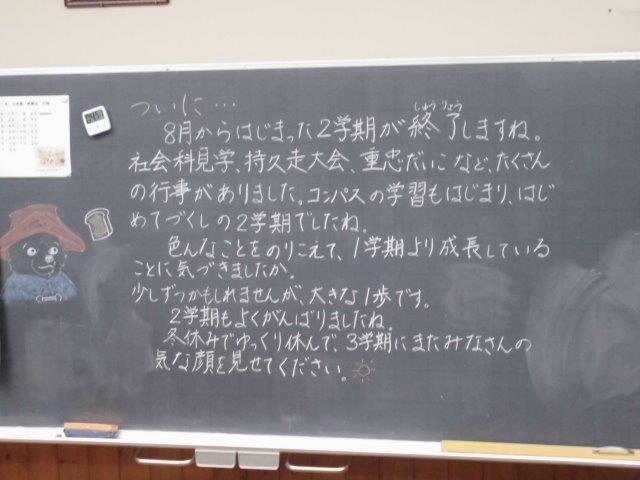 ついに…
しゅうりょう
8月からはじまった2学期が終了しますね。
社会科見学、持久走大会、重忠だいこなど、たくさん
の行事がありました。コンパスの学習もはじまり、はじ
めてづくしの2学期でしたね。
色んなことをのりこえて、1学期より成長している
ことに気づきましたか。
少しずつかもしれませんが、大きな1歩です。
2学期もよくがんばりましたね。
冬休みでゆっくり休んで、3学期にまたみなさんの
気な顔を見せてください。